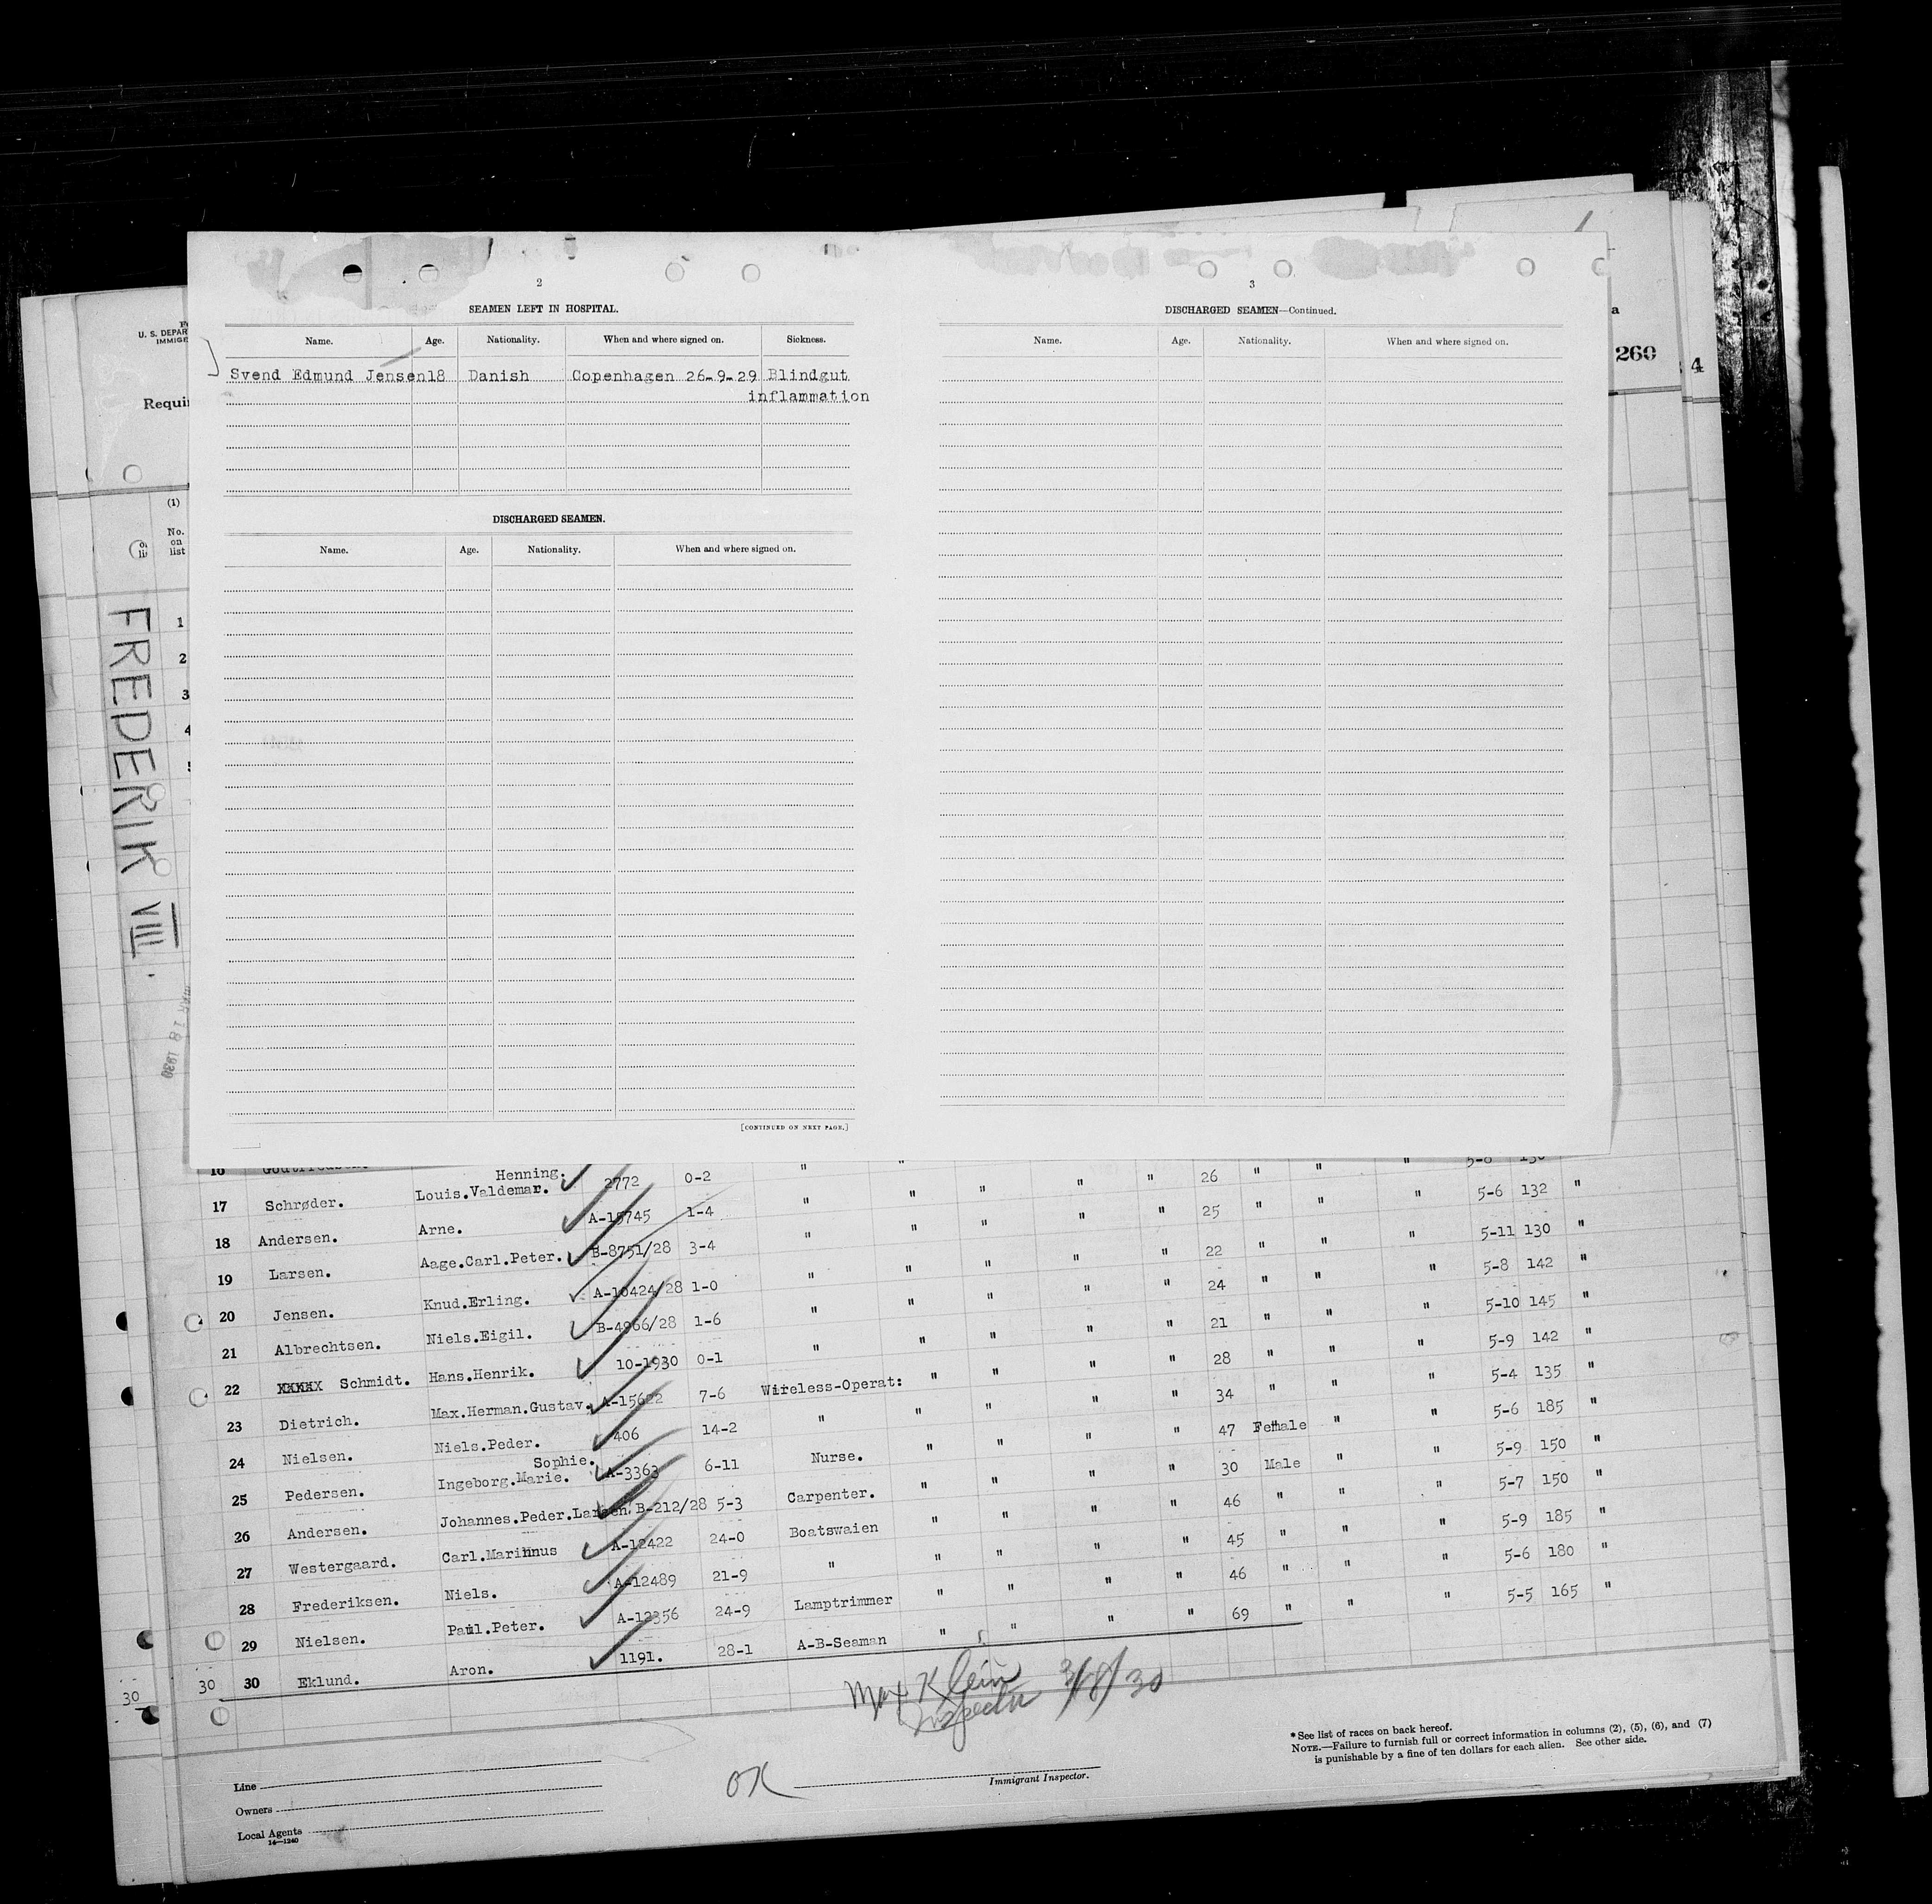 2
SEAMEN LEFT IN HOSPITAL.
Name. Age. Nationality. When and where signed on. Sickness.
Svend Edmund Jensen 18 Danish Copenhagen 26-9-29 Blindgut
inflammation
DISCHARGED SEAMEN.
Name. Age. Nationality. When and where signed on.
[CONTINUED ON NEXT PAGE.]
3
DISCHARGED SEAMEN—Continued.
Name. Age. Nationality. When and where signed on.
U. S. DEPAR
IMMIGR
Requi
260
4
(1)
No.
on
list
1
2
3
4
FREDERIK VIII.
MAR 18 1930
Henning.
17 Schrøder. Louis.Valdemar. 2772 0-2 " " " " " 26 " " " 5-6 132 "
18 Andersen. Arne. A-15745 1-4 " " " " " 25 " " " 5-11 130 "
19 Larsen. Aage.Carl.Peter. B-8751/28 3-4 " " " " " 22 " " " 5-8 142 "
20 Jensen. Knud.Erling. A-10424/28 1-0 " " " " " 24 " " " 5-10 145 "
21 Albrechtsen. Niels.Eigil. B-4966/28 1-6 " " " " " 21 " " " 5-9 142 "
22 XXXXX Schmidt. Hans.Henrik. 10-1930 0-1 " " " " " 28 " " " 5-4 135 "
23 Dietrich. Max.Herman.Gustav. A-15622 7-6 Wireless-Operat: " " " " 34 " " " 5-6 185 "
24 Nielsen. Niels.Peder. 406 14-2 " " " " " 47 Female " " 5-9 150 "
Sophie.
25 Pedersen. Ingeborg.Marie. A-3363 6-11 Nurse. " " " " 30 Male " " 5-7 150 "
26 Andersen. Johannes.Peder.Larsen. B-212/28 5-3 Carpenter. " " " " 46 " " " 5-9 185 "
27 Westergaard. Carl.Marinnus A-12422 24-0 Boatswaien " " " " 45 " " " 5-6 180 "
28 Frederiksen. Niels. A-12489 21-9 " " " " " 46 " " " 5-5 165 "
29 Nielsen. Paul.Peter. A-12356 24-9 Lamptrimmer " " " " 69 " " "
30 30 30 Eklund. Aron. 1191. 28-1 A-B-Seaman " "
Max Klein 3/18/30
Inspector
OK
Immigrant Inspector.
Line
Owners
Local Agents
14—1240
* See list of races on back hereof.
NOTE.—Failure to furnish full or correct information in columns (2), (5), (6), and (7)
is punishable by a fine of ten dollars for each alien. See other side.